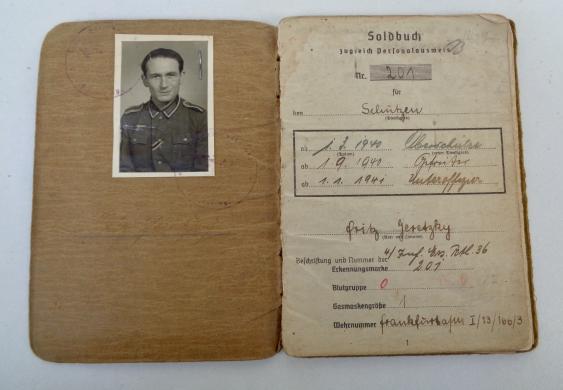 Soldbuch
zugleich Personalausweis
Nr. 201
für
den Schützen
(Dienstgrad)
ab 1.3.1940 Oberschütze
(Datum) (neuer Dienstgrad)
ab 1.9.1940 Gefreiter
ab 1.1.1941 Unteroffizier
Fritz Geretzky
(Vor- und Zuname)
4/Inf. Ers. Btl. 36
Beschriftung und Nummer der
Erkennungsmarke 201
Blutgruppe 0
Gasmaskengröße 1
Wehrnummer Frankfurt I/13/166/3
1